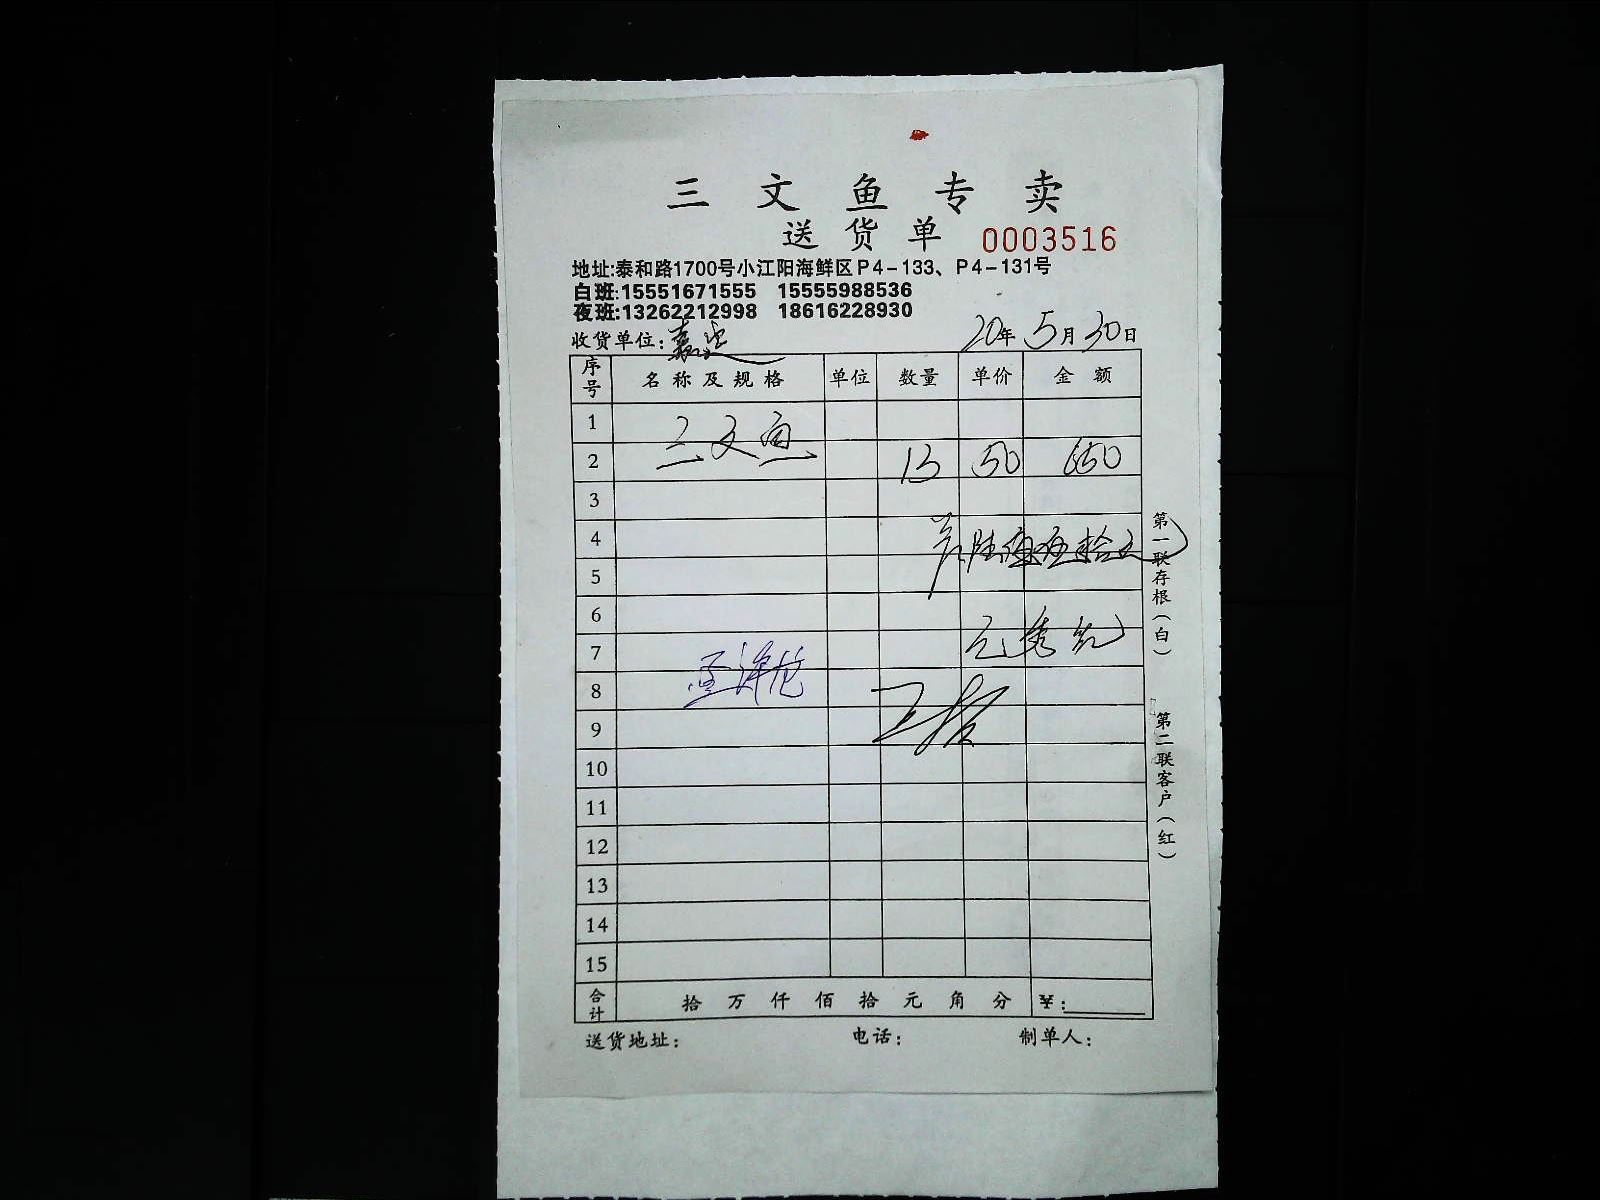 三文鱼专卖
送货单 0003516
地址:泰和路1700号小江阳海鲜区P4-133、P4-131号
白班:15551671555 15555988536
夜班:13262212998 18616228930
收货单位: 20年5月30日
序号 名称及规格 单位 数量 单价 金额
1 三文鱼
2 13 50 650
3
4
5
6
7
8
9
10
11
12
13
14
15
合计 拾万仟佰拾元角分 ¥:
送货地址: 电话: 制单人:
第一联存根(白)
第二联客户(红)